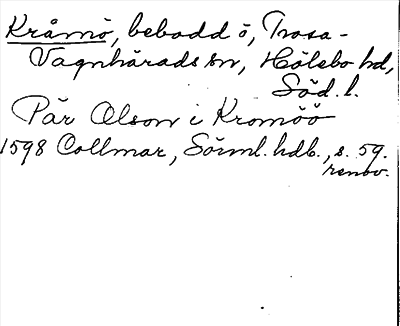 Kråmö, bebodd ö, Trosa-
Vagnhärads sn, Hölebo hd,
Söd. l.
Pär Olson i Kromöö
1598 Collmar, Sörml. hdl., s. 59.
renov.